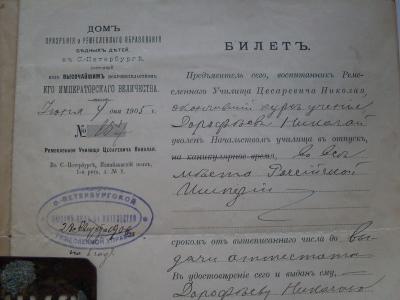 ДОМЪ
ПРИЗРѢНІЯ и РЕМЕСЛЕННАГО ОБРАЗОВАНІЯ
БѢДНЫХЪ ДѢТЕЙ,
въ С.-Петербургѣ,
состоящій
подъ ВЫСОЧАЙШИМЪ покровительствомъ
ЕГО ИМПЕРАТОРСКАГО ВЕЛИЧЕСТВА.
Іюня 4 дня 1905 г.
№ 104
Ремесленное Училище Цесаревича Николая.
Въ С.-Петербургѣ, Измайловскій полкъ,
1-я рота, д. № 1.
С.-ПЕТЕРБУРГСКОЙ
РЕМЕСЛЕННОЙ УПРАВЫ
на 1 годъ
БИЛЕТЪ.
Предъявитель сего, воспитанникъ Реме-
сленнаго Училища Цесаревича Николая,
окончившій курсъ ученія
Дорофѣевъ Николай
уволенъ Начальствомъ училища въ отпускъ,
на каникулярное время, во всѣ
мѣста Россійской
Имперіи
срокомъ отъ вышеписаннаго числа до вы-
дачи аттестата
Въ удостовѣреніе сего и выданъ ему,
Дорофѣеву Николаю